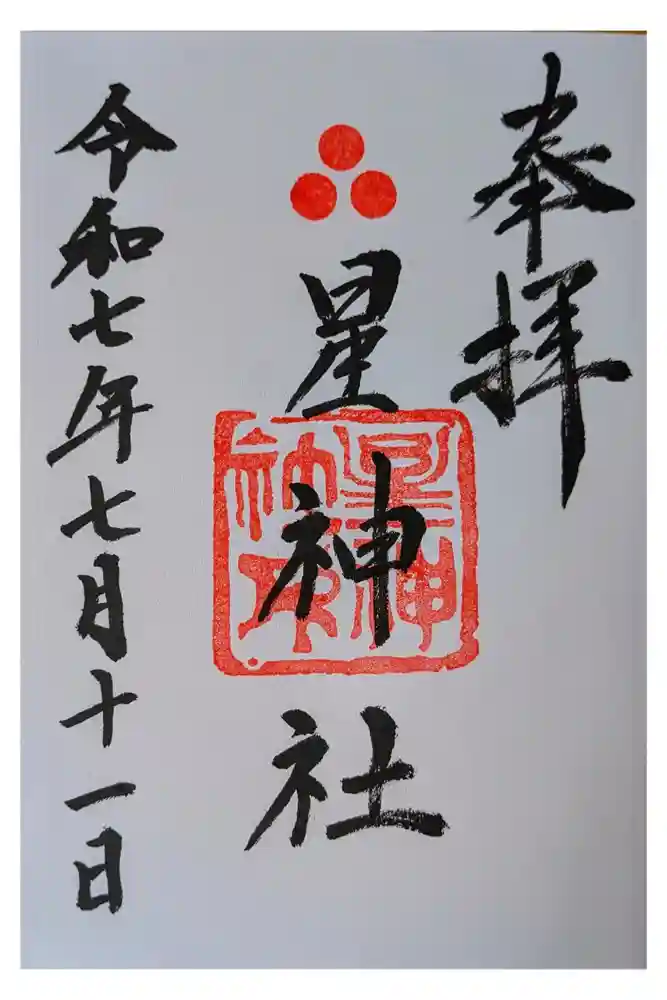 奉拝
星神社
星神社印
令和七年七月十一日